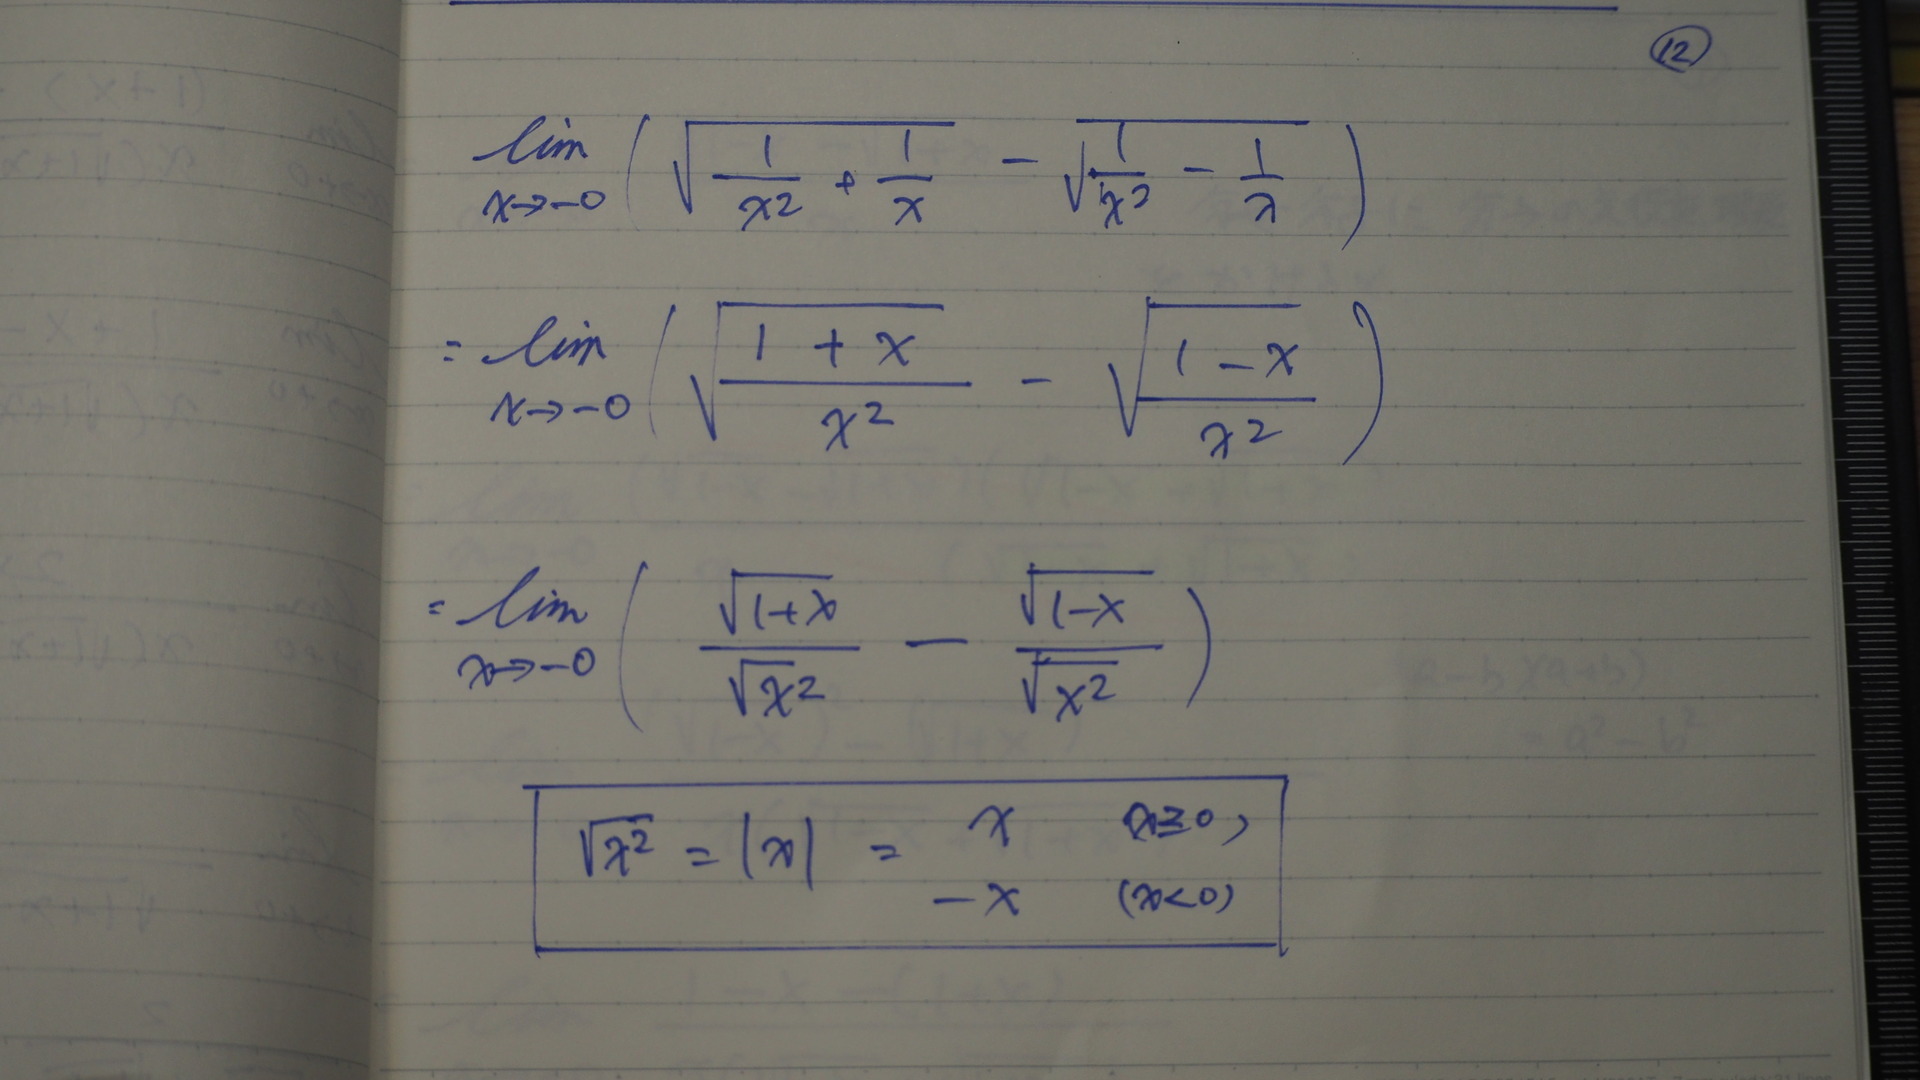 ⑫
lim x→-0 ( √(1/x² + 1/x) - √(1/x² - 1/x) )
= lim x→-0 ( √((1 + x)/x²) - √((1 - x)/x²) )
= lim x→-0 ( √(1+x)/√x² - √(1-x)/√x² )
√x² = |x| = x x≧0,
-x (x<0)